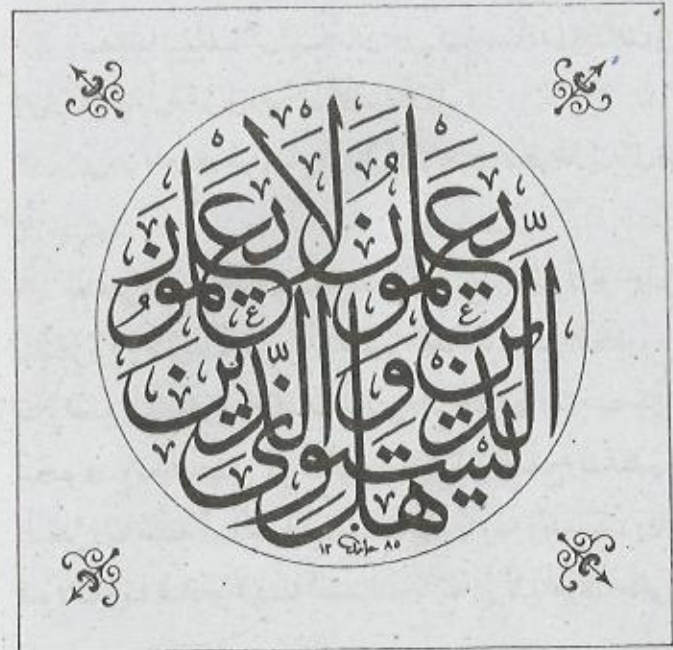 هل يستوي الذين يعلمون والذين لا يعلمون